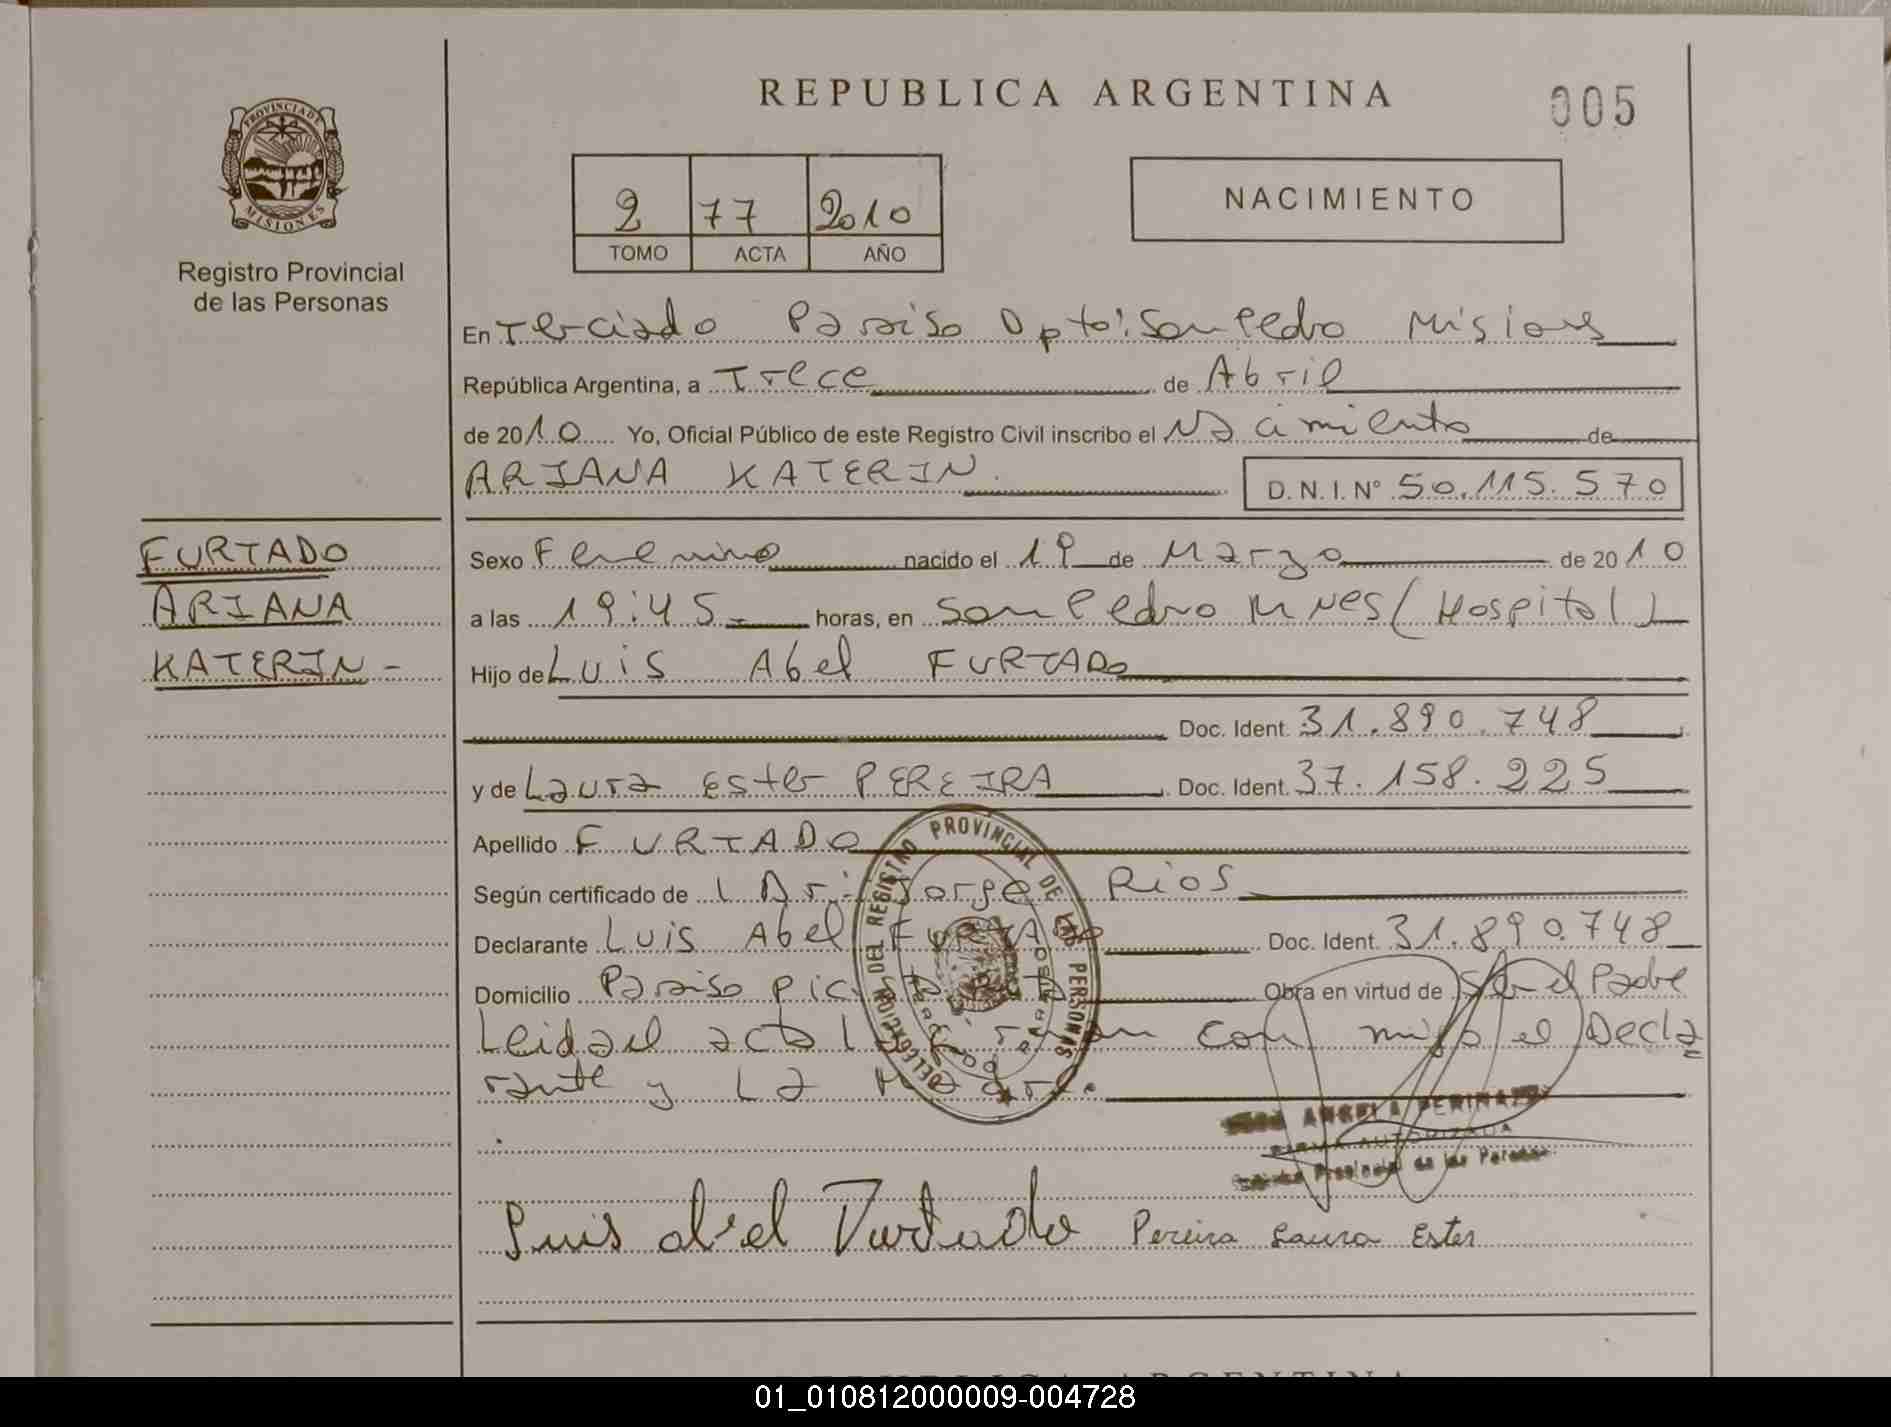 REPUBLICA ARGENTINA
005
PROVINCIA DE
MISIONES
Registro Provincial
de las Personas
2 77 2010
TOMO ACTA AÑO
NACIMIENTO
En Terciado Paraiso Dpto: San Pedro Misiones
República Argentina, a Trece de Abril
de 2010 Yo, Oficial Público de este Registro Civil inscribo el Nacimiento de
ARIANA KATERIN D.N.I.Nº 50.115.570
FURTADO
ARIANA
KATERIN -
Sexo Femenino nacido el 19 de Marzo de 2010
a las 19:45 horas, en San Pedro Mnes (Hospital)
Hijo de Luis Abel FURTADO
Doc. Ident. 31.890.748
y de Laura Ester PEREIRA Doc. Ident. 37.158.225
Apellido FURTADO
Según certificado de Dr: Jorge Rios
Declarante Luis Abel FURTADO Doc. Ident. 31.890.748
Domicilio Paraiso Obra en virtud de Ser el Padre
Leida el acta con migo el Decla
rante y La Madre.
DELEGACION DEL REGISTRO PROVINCIAL DE LAS PERSONAS
ANGELA
FIRMA AUTORIZADA
Provincial de las Personas
Luis abel Furtado Pereira Laura Ester
01_010812000009-004728